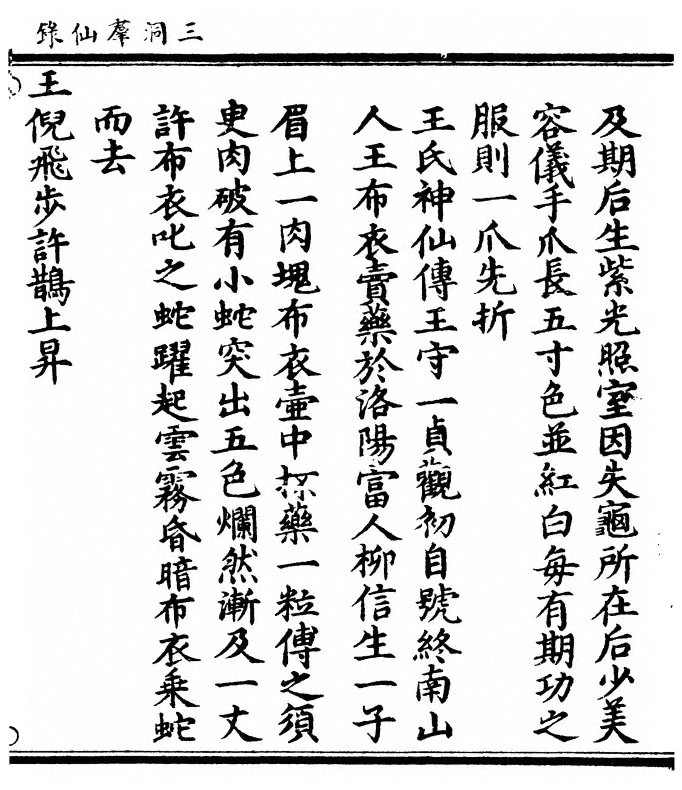 三洞羣仙錄
及期后生紫光照室因失龜所在后少美
容儀手爪長五寸色並紅白每有期功之
服則一爪先折
王氏神仙傳王守一貞觀初自號終南山
人王布衣賣藥於洛陽富人柳信生一子
眉上一肉塊布衣壷中探藥一粒傅之須
㬰肉破有小蛇突出五色爛然漸及一丈
許布衣叱之蛇躍起雲霧昏暗布衣乗蛇
而去
王倪飛步許鵲上昇